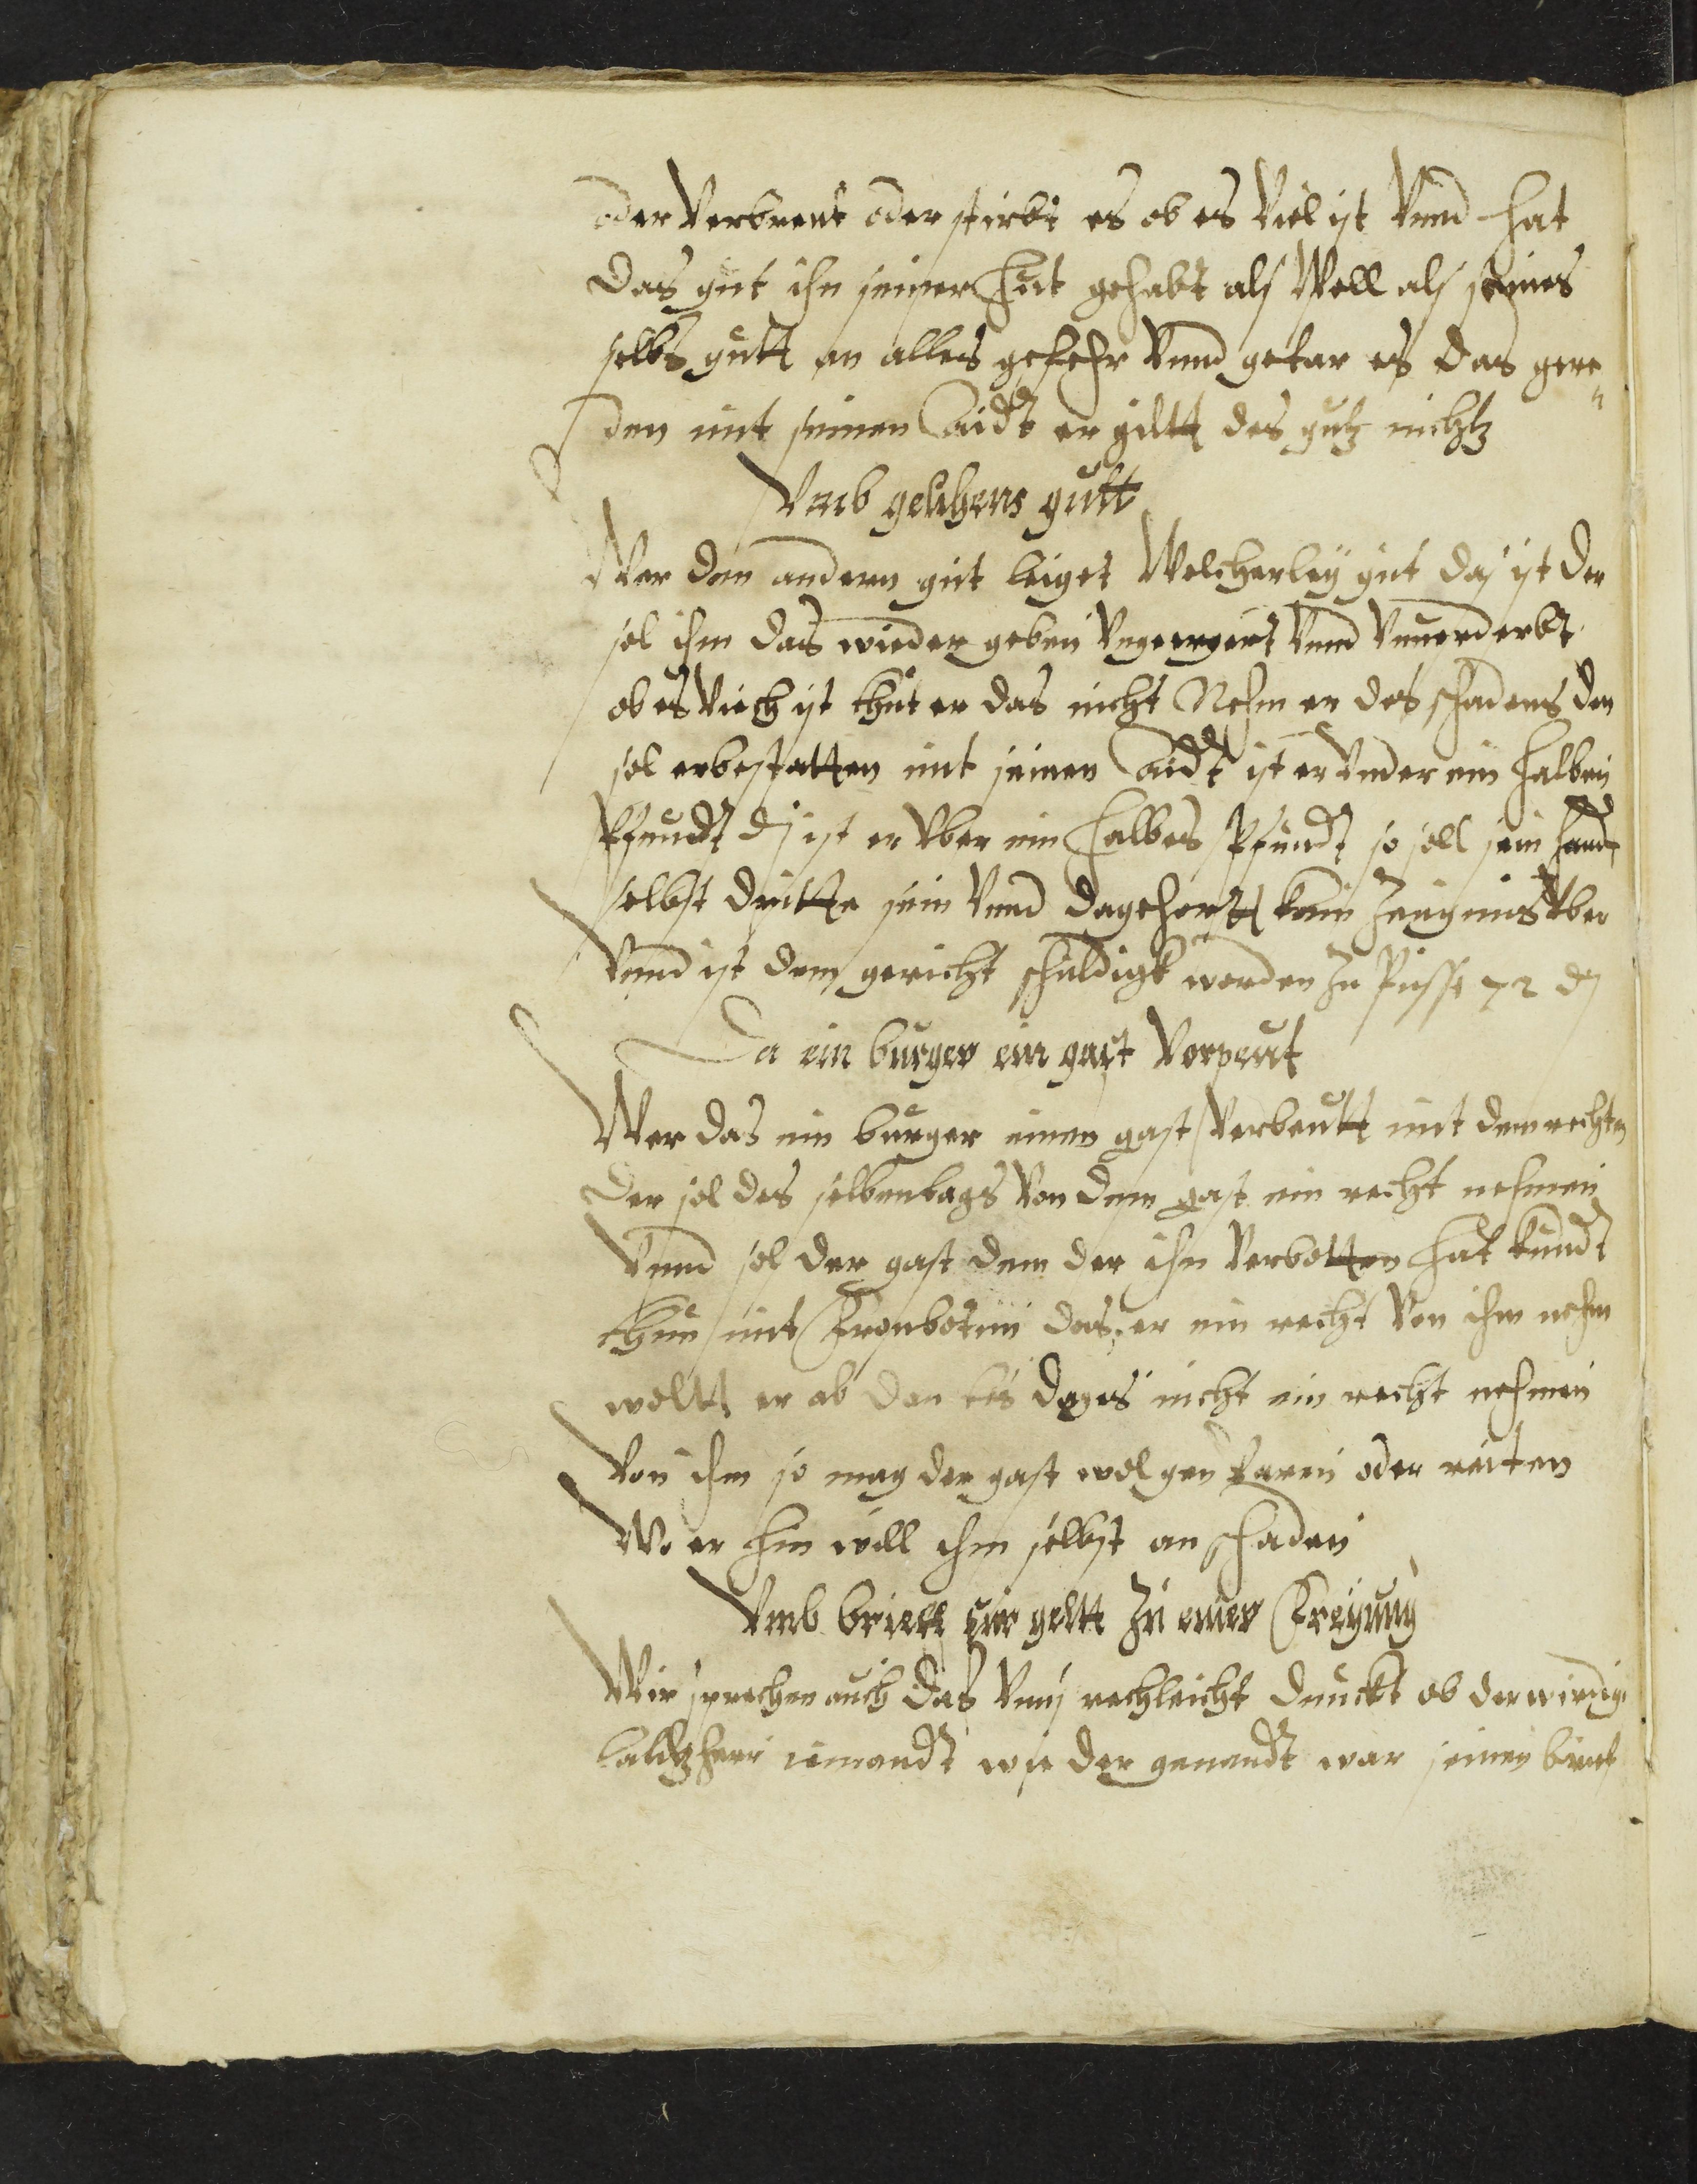 oder Verbrent oder stirbt es ob es Viel ist Vnnd hat
das gut ihn seiner hut gehabt als Woll als seines
selbs gutt an alles gefehr Vnnd getar es das gere„
den mit seinen Aidt er giltt des gutz nichtz
Vmb gelihens gutt
Wer den andern gut leiget Welcherley gut das ist der
sol ihm das wieder geben Vngeergert Vnnd Vnuerderbt
ob es Viech ist thut er das nicht Nehm er des schadens den
sol erbestatten mit seinen Aidt ist er vnder ein halben
Pfundt ₰ ist er Vber ein halbes Pfundt so soll sein handt
selbst dritte sein Vnnd dagehortt kein Zeugnus Vber
Vnnd ist dem gericht schuldigk worden Zu Pusse 72 ₰
Da ein burger ein gast Verpeut
Wer das ein burger einen gast Verbeutt mit dem rechten
der sol des selbentags Von dem gast ein recht nehmen
Vnnd sol der gast dem der ihn Verbotten hat kundt
thun mit Fronboten das er ein recht Von ihm nehm
woltt er ab den des dages nicht ein recht nehmen
Von ihm so mag der gast wol gen Faren oder reiten
Wo er hin will ihm selbst an schaden
Vmb brieff fur geltt Zu einer Freyung
Wir sprechen auch das Vnns rechleicht dunckt ob der wirdig
iemandt wie der genandt war seinen brief